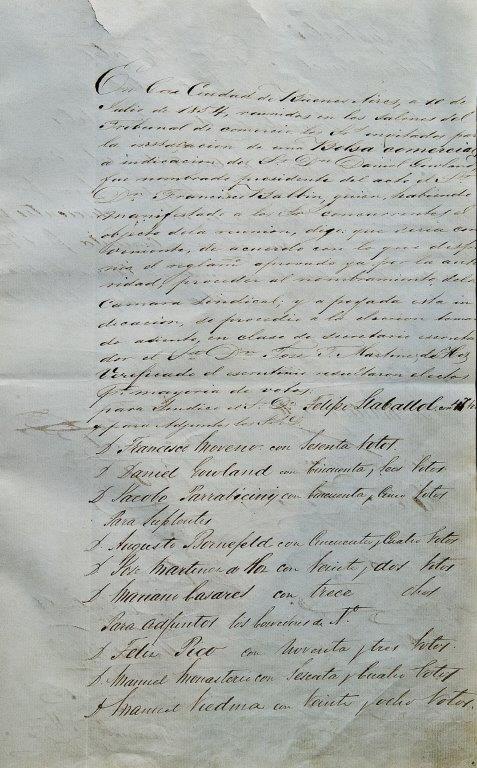 En la Ciudad de Buenos Aires, a 10 de
Julio de 1854, reunidos en los Salones del
Tribunal de comercio los Sres invitados para
la instalacion de una Bolsa comercial,
a indicacion del Sr Dn Daniel Gowland
fue nombrado presidente del acto el Sr
Dn Francisco Balbin, quien, habiendo
manifestado a los Sres concurrentes el
objeto de la reunion, dijo: que seria con
veniente, de acuerdo con lo que
el reglamto aprovado ya por la auto
ridad, proceder al nombramiento de la
Camara Sindical; y apoyada esta in
dicacion, se procedio a la eleccion
de asiento, en clase de secretario escruta
dor el Sr Dn Jose Martinez de Hoz
Verificado el escrutinio resultaron electos
pr mayoria de votos:
para Sindico el Sr Dn Felipe Llavallol con
y para Adjuntos los Sres
D. Francisco Moreno con Sesenta Votos
D. Daniel Gowland con Cincuenta y Votos
D. Jacobo Parravicini con Cincuenta y Cinco Votos
Para Suplentes
D. Augusto Bornefeld con Cincuenta y Cuatro Votos
D. Jose Martinez de Hoz con Veinte y dos Votos
D. Mariano Casares con trece
Para adjuntos los Corredores de No
D. Felix Pico con Noventa y tres Votos.
D. Manuel Monasterio con Sesenta y Cuatro Votos
D. Manuel Viedma con Veinte y ocho Votos.